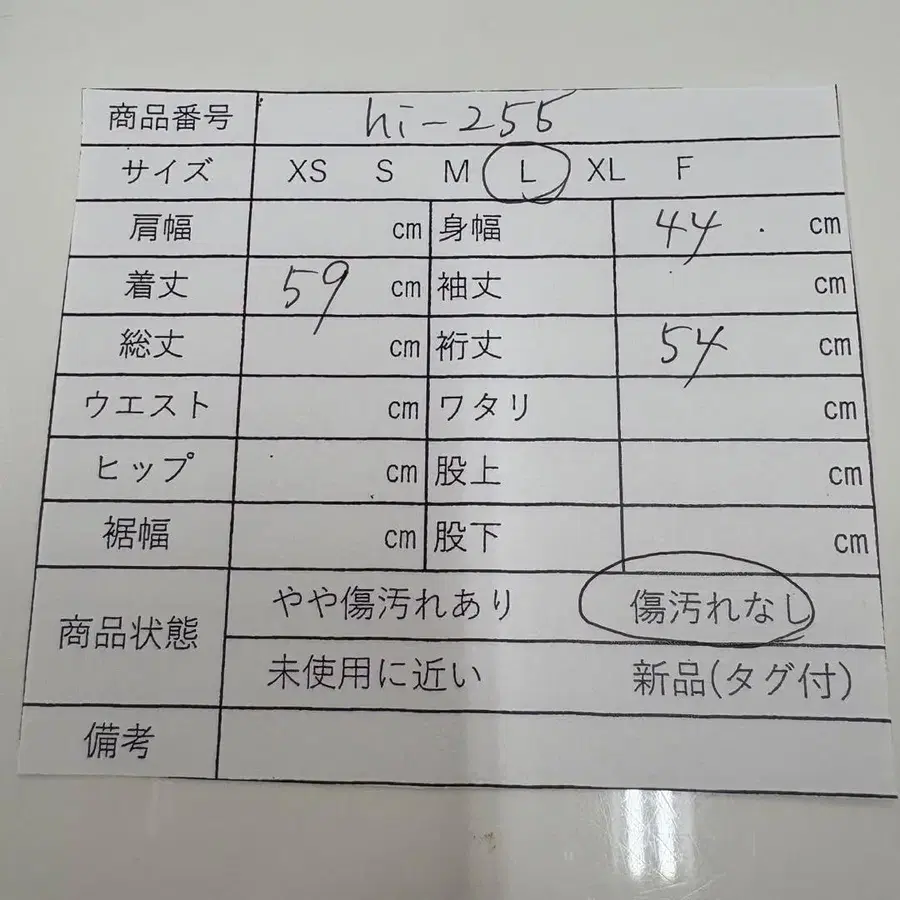 商品番号 hi-255
サイズ XS S M L XL F
肩幅 cm 身幅 44 cm
着丈 59 cm 袖丈 cm
総丈 cm 裄丈 54 cm
ウエスト cm ワタリ cm
ヒップ cm 股上 cm
裾幅 cm 股下 cm
商品状態 やや傷汚れあり 傷汚れなし
未使用に近い 新品(タグ付)
備考